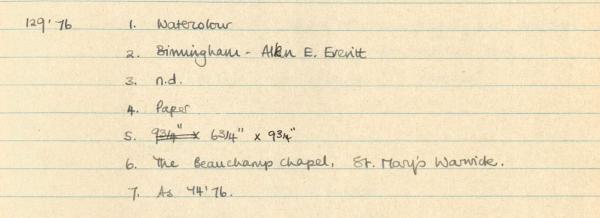 129'76 1. Watercolour
2. Birmingham - Allen E. Everitt
3. n.d.
4. Paper
5. 9 3/4" x 6 3/4" x 9 3/4"
6. The Beauchamp Chapel, St. Mary's Warwick.
7. As 44'76.